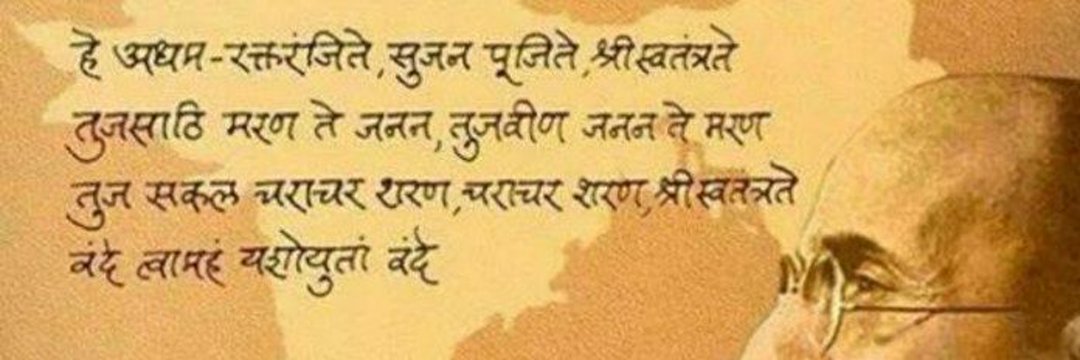 हे अधम-रक्तरंजिते,सुजन पूजिते,श्रीस्वतंत्रते
तुजसाठि मरण ते जनन,तुजवीण जनन ते मरण
तुज सकल चराचर शरण,चराचर शरण,श्रीस्वतंत्रते
वंदे त्वामहं यशोयुतां वंदे